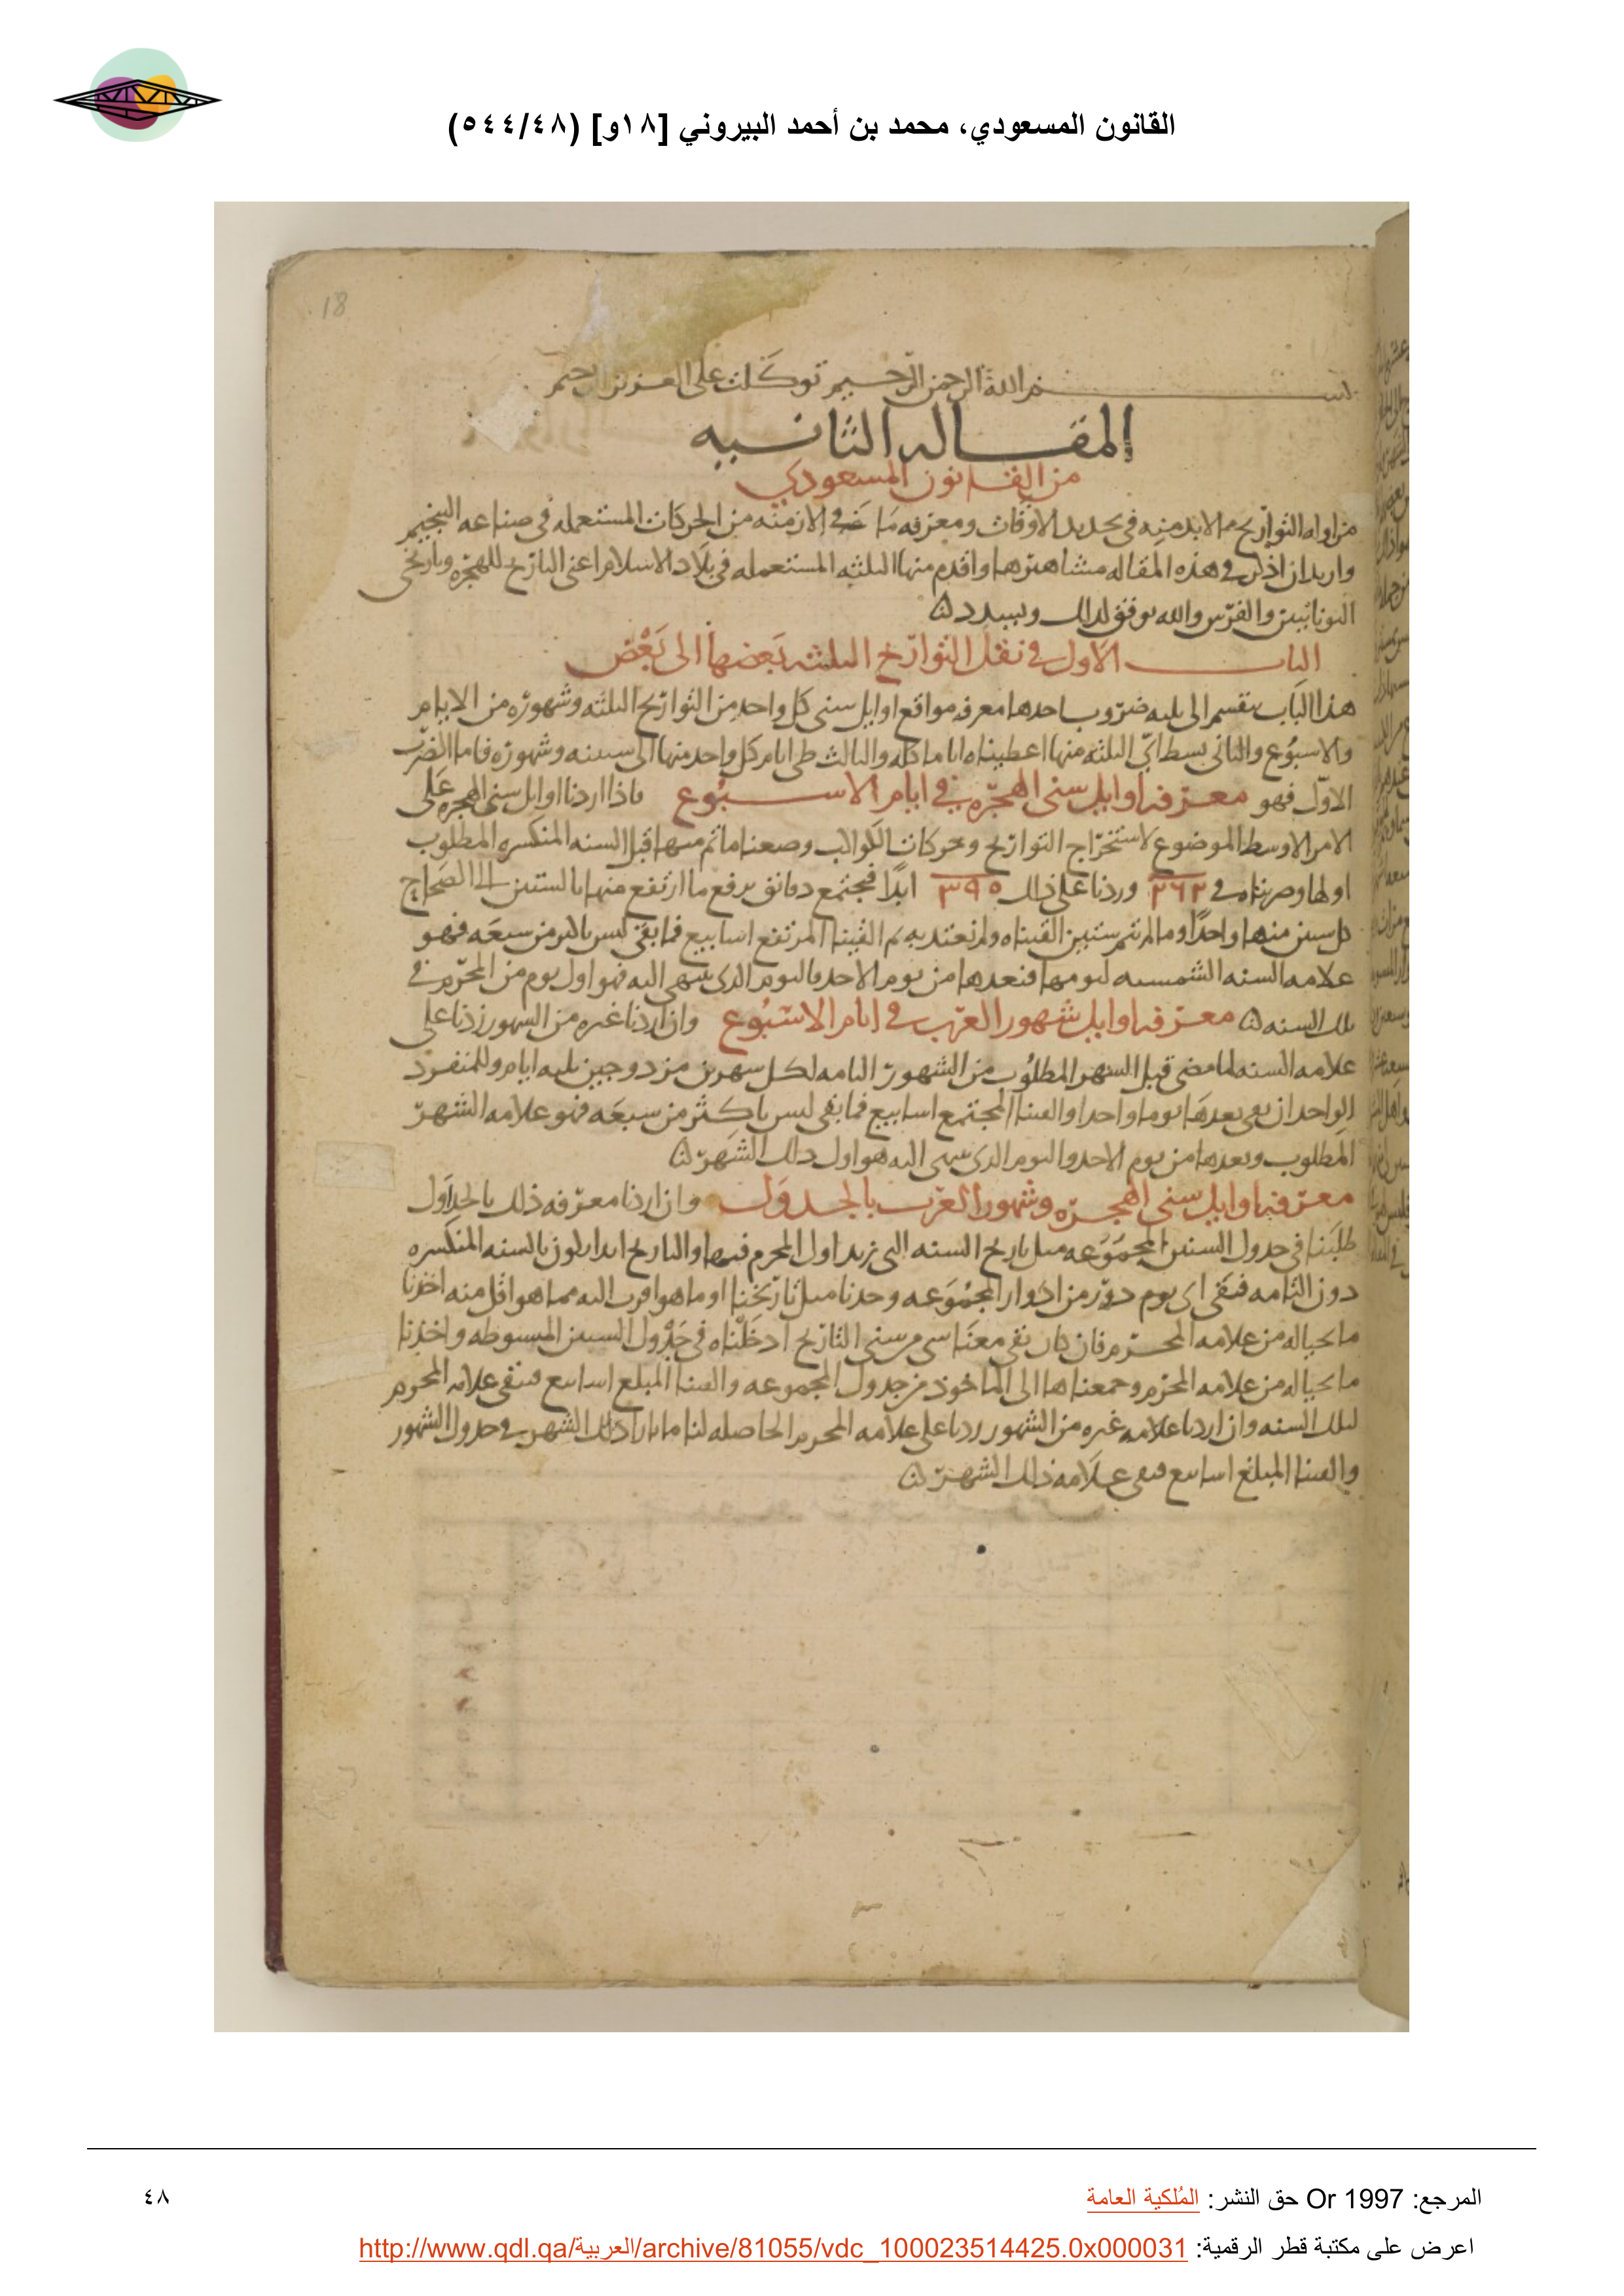 القانون المسعودي، محمد بن أحمد البيروني [١٨و] (٥٤٤/٤٨)
18
بسم الله الرحمن الرحيم توكلت على العزيز الرحيم
المقاله الثانيه
من القانون المسعودي
مزاوله التواريخ مما لابد منه في تحديد الاوقات ومعرفه ما في الازمنه من الحركات المستعمله في صناعه التنجيم
واريد ان اذكر في هذه المقاله مشاهيرها واقدم منها الثلثه المستعمله في بلاد الاسلام اعنى التاريخ للهجره وتاريخى
اليونانيين والفرس والله يوفق لذلك ويسدد
الباب الاول في نقل التواريخ الثلثه بعضها الى بعض
هذا الباب ينقسم الى ثلثه ضروب احدها معرفه مواقع اوايل سنى كل واحد من التواريخ الثلثه وشهوره من الايام
والاسبوع والثانى بسط اىّ الثلثه منها اعطيناه اياما كله والثالث طى ايام كل واحد منها الى سنينه وشهوره فاما الضرب
الاوّل فهو معرفه اوايل سنى الهجره في ايام الاسبوع فاذا اردنا اوايل سنى الهجره على
الامر الاوسط الموضوع لاستخراج التواريخ وحركات الكواكب وضعنا ما تم منها قبل السنه المنكسره المطلوب
اولها وضربناه في ٢٦٢ وزدنا على ذلك ٣٩٥ ابدًا فيجتمع دقائق يرفع ما ارتفع منها بالستين الى الصحاح
كل ستين منها واحدًا وما لم يتم ستين القيناه ولم نعتد به ثم القينا المرتفع اسابيع فما بقى ليس باكثر من سبعه فهو
علامه السنه الشمسيه ليومها فنعدها من يوم الاحد فاليوم الذى ينتهى اليه فهو اول يوم من المحرم في
تلك السنه معرفه اوايل شهور العرب في ايام الاسبوع وان اردنا غيره من الشهور زدنا على
علامه السنه لما مضى قبل الشهر المطلوب من الشهور التامه لكل شهرين مزدوجين ثلثه ايام وللمنفرد
الواحد ان بقى بعدها يوما واحدا والقينا المجتمع اسابيع فما بقى ليس باكثر من سبعه فهو علامه الشهر
المطلوب ونعدها من يوم الاحد واليوم الذى ينتهى اليه هو اول ذلك الشهر
معرفه اوايل سنى الهجره وشهور العرب بالجدول وان اردنا معرفه ذلك بالجداول
طلبنا في جدول السنين المجموعه مثل تاريخ السنه التى نريد اول المحرم فيها والتاريخ ابدا يكون بالسنه المنكسره
دون التامه فنقى اى يوم دور من ادوار المجموعه وجدنا مثل تاريخنا او ما هو اقرب اليه مما هو اقل منه اخذنا
ما بحياله من علامه المحرم فان كان بقى معنا شى من سنى التاريخ ادخلناه في جدول السنين المبسوطه واخذنا
ما بحياله من علامه المحرم وجمعناها الى الماخوذ من جدول المجموعه والقينا المبلغ اسابيع فتبقى علامه المحرم
لتلك السنه وان اردنا علامه غيره من الشهور زدنا على علامه المحرم الحاصله لنا ما بازاء ذلك الشهر في جدول الشهور
والقينا المبلغ اسابيع فتبقى علامه ذلك الشهر
المرجع: Or 1997 حق النشر: المُلكية العامة
٤٨
اعرض على مكتبة قطر الرقمية: http://www.qdl.qa/العربية/archive/81055/vdc_100023514425.0x000031